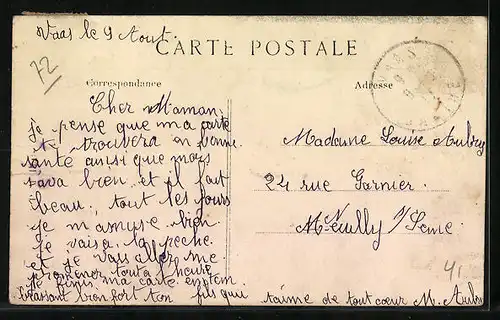 Vaas le 9 Aout.
72
CARTE POSTALE
Correspondance
Adresse
Cher Maman.
je pense que ma carte
te trouvera en bonne
santé ainsi que mois
sava bien et il fait
beau, tout les jours
je m'amuse bien
je vais a la peche.
et je vais aller me
promener tout a l'heure
je finis ma carte en tem
brassant bien fort ton fils qui t'aime de tout cœur M. Aubry
Madame Louise Aubry
24 rue Garnier.
Neuilly s/ Seine
41